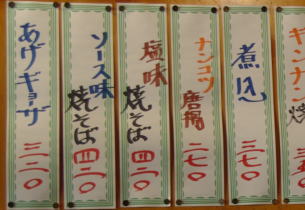 あげギョーザ 三二〇
ソース味 焼そば 四二〇
塩味 焼そば 四二〇
ナンコツ 唐揚 二七〇
煮 三七〇
ギンナン